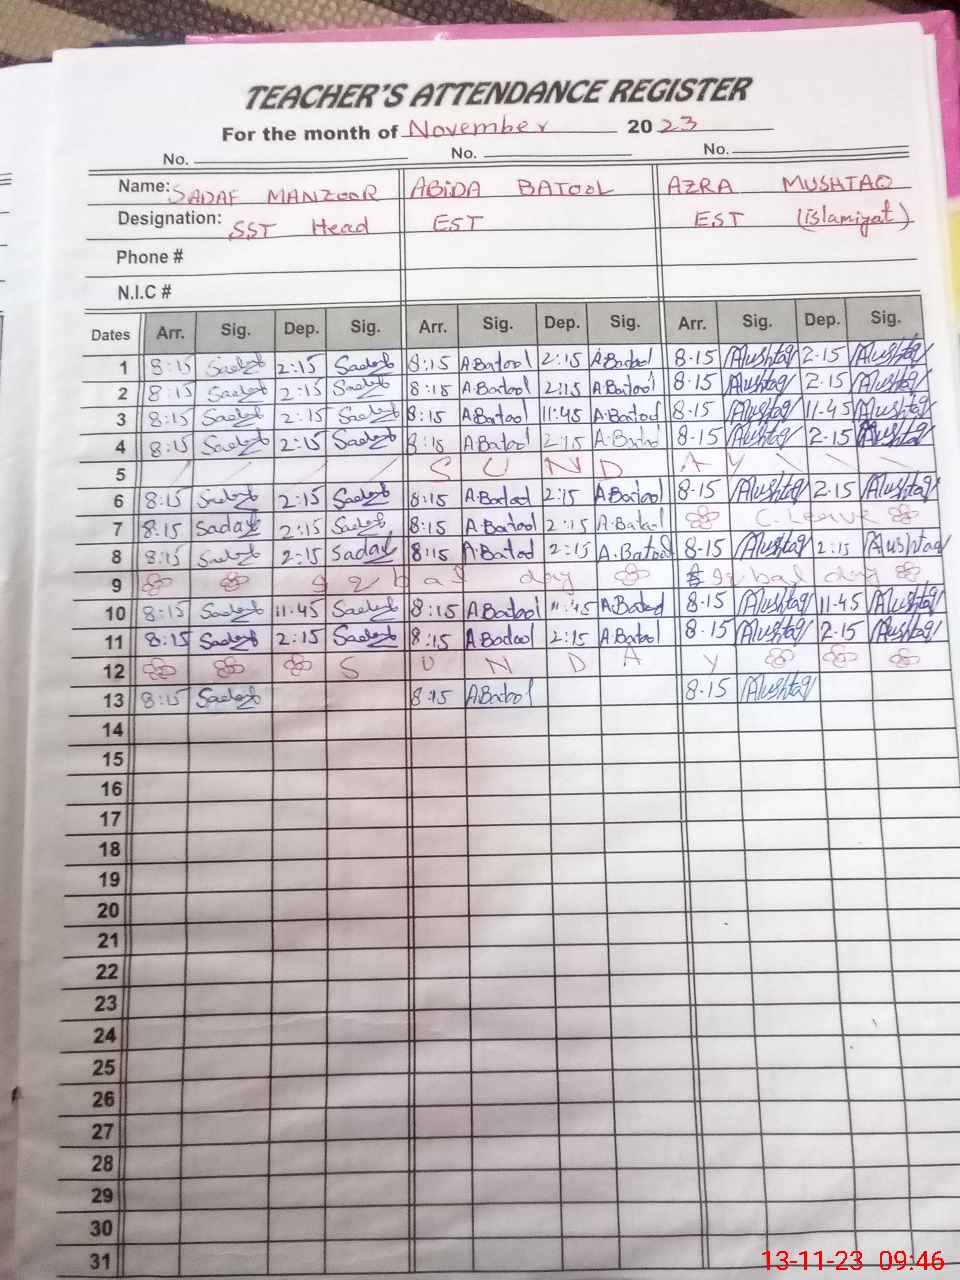 TEACHER'S ATTENDANCE REGISTER
For the month of November 2023
No. No. No.
Name: SADAF MANZOOR ABIDA BATOOL AZRA MUSHTAQ
Designation: SST Head EST EST (islamiyat)
Phone #
N.I.C #
Dates Arr. Sig. Dep. Sig. Arr. Sig. Dep. Sig. Arr. Sig. Dep. Sig.
1 8:15 Sadaf 2:15 Sadaf 8:15 A.Batool 2:15 A.Batool 8-15 Mushtaq 2-15 Mushtaq
2 8:15 Sadaf 2:15 Sadaf 8:15 A.Batool 2:15 A.Batool 8-15 Mushtaq 2-15 Mushtaq
3 8:15 Sadaf 2:15 Sadaf 8:15 A.Batool 11:45 A.Batool 8-15 Mushtaq 11-45 Mushtaq
4 8:15 Sadaf 2:15 Sadaf 8:15 A.Batool 2:15 A.Batool 8-15 Mushtaq 2-15 Mushtaq
5 S U N D A Y
6 8:15 Sadaf 2:15 Sadaf 8:15 A.Batool 2:15 A.Batool 8-15 Mushtaq 2-15 Mushtaq
7 8:15 Sadaf 2:15 Sadaf 8:15 A.Batool 2:15 A.Batool C. Leave
8 8:15 Sadaf 2:15 Sadaf 8:15 A.Batool 2:15 A.Batool 8-15 Mushtaq 2:15 Mushtaq
9 iqbal day iqbal day
10 8:15 Sadaf 11-45 Sadaf 8:15 A.Batool 11:45 A.Batool 8-15 Mushtaq 11-45 Mushtaq
11 8:15 Sadaf 2:15 Sadaf 8:15 A.Batool 2:15 A.Batool 8-15 Mushtaq 2-15 Mushtaq
12 S U N D A Y
13 8:15 Sadaf 8:15 A.Batool 8-15 Mushtaq
14
15
16
17
18
19
20
21
22
23
24
25
26
27
28
29
30
31
13-11-23 09:46